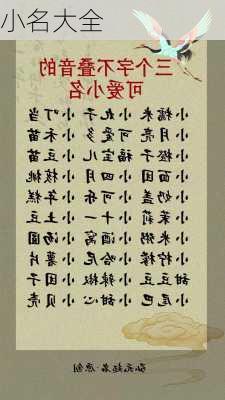 小名大全
三个字不叠音的
可爱小名
小糯米 小丸子 小叮当
小月亮 可爱多 小禾苗
小橙子 福宝儿 小豆苗
小四月 小核桃
小奶盖 小可乐 小年糕
小茉莉 小十一 小土豆
小米粥 小酒窝 小汤圆
小柠檬 小哈尼 小薯片
甜豆豆 小辣椒 小团子
小尾巴 小甜心 小贝壳
原创